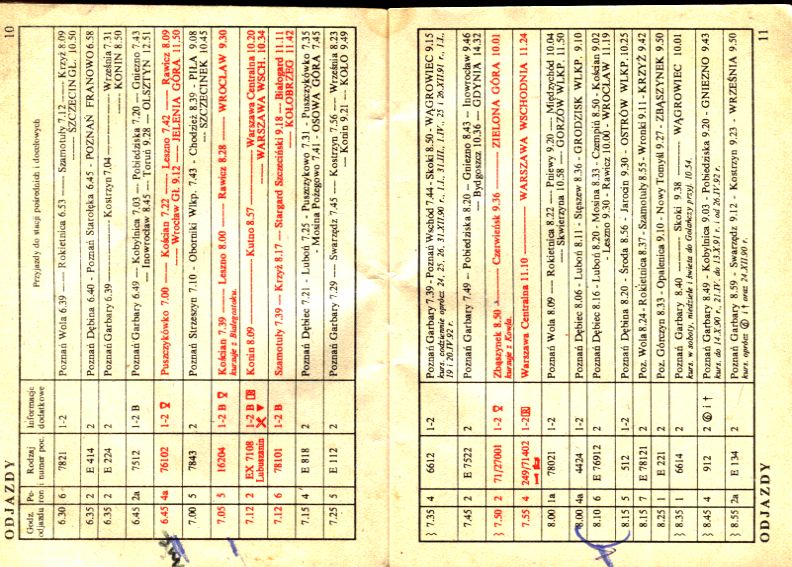 10
ODJAZDY
Godz. odjazdu Peron Rodzaj i numer poc. Informacje dodatkowe Przyjazdy do stacji pośrednich i docelowych
6.30 6 7821 1-2 Poznań Wola 6.39 — Rokietnica 6.53 — Szamotuły 7.12 — Krzyż 8.09
— SZCZECIN GŁ. 10.50
6.35 2 E 414 2 Poznań Dębina 6.40 - Poznań Starołęka 6.45 - POZNAŃ FRANOWO 6.58
6.35 2 E 224 2 Poznań Garbary 6.39 — Kostrzyn 7.04 — Września 7.31
— KONIN 8.50
6.45 2a 7512 1-2 B Poznań Garbary 6.49 — Kobylnica 7.03 — Pobiedziska 7.20 — Gniezno 7.43
— Inowrocław 8.45 — Toruń 9.28 — OLSZTYN 12.51
6.45 4a 76102 1-2 Puszczykówko 7.00 — Kościan 7.22 — Leszno 7.42 — Rawicz 8.09
— Wrocław Gł. 9.12 — JELENIA GÓRA 11.50
7.00 5 7843 2 Poznań Strzeszyn 7.10 - Oborniki Wlkp. 7.43 - Chodzież 8.39 - PIŁA 9.08
— SZCZECINEK 10.45
7.05 5 16204 1-2 B Kościan 7.39 — Leszno 8.00 — Rawicz 8.28 — WROCŁAW 9.30
kursuje z Białegostoku.
7.12 2 EX 7108 Lubuszanin 1-2 B R Konin 8.09 — Kutno 8.57 — Warszawa Centralna 10.20
— WARSZAWA WSCH. 10.34
7.12 6 78101 1-2 B Szamotuły 7.39 — Krzyż 8.17 — Stargard Szczeciński 9.18 — Białogard 11.11
— KOŁOBRZEG 11.42
7.15 4 E 818 2 Poznań Dębiec 7.21 - Luboń 7.25 - Puszczykowo 7.31 - Puszczykówko 7.35
- Mosina Pożegowo 7.41 - OSOWA GÓRA 7.45
7.25 5 E 112 2 Poznań Garbary 7.29 — Swarzędz 7.45 — Kostrzyn 7.56 — Września 8.23
— Konin 9.21 — KOŁO 9.49
7.35 4 6612 1-2 Poznań Garbary 7.39 - Poznań Wschód 7.44 - Skoki 8.50 - WĄGROWIEC 9.15
kurs. codziennie oprócz 24, 25, 26, 31.XII.90 r., 1.I, 31.III, 1.IV, 25 i 26.XII.91 r., 1.I,
19 i 20.IV.92 r.
7.45 2 E 7522 2 Poznań Garbary 7.49 — Pobiedziska 8.20 — Gniezno 8.43 — Inowrocław 9.46
— Bydgoszcz 10.36 — GDYNIA 14.32
7.50 2 71/27001 1-2 Zbąszynek 8.50 — Czerwieńsk 9.36 — ZIELONA GÓRA 10.01
kursuje z Kowla.
7.55 4 249/71402 1-2 R Warszawa Centralna 11.10 — WARSZAWA WSCHODNIA 11.24
8.00 1a 78021 1-2 Poznań Wola 8.09 — Rokietnica 8.22 — Pniewy 9.20 — Międzychód 10.04
— Skwierzyna 10.58 — GORZÓW WLKP. 11.50
8.00 4a 4424 1-2 Poznań Dębiec 8.06 - Luboń 8.11 - Stęszew 8.36 - GRODZISK WLKP. 9.10
8.10 6 E 76912 2 Poznań Dębiec 8.16 - Luboń 8.20 - Mosina 8.33 - Czempiń 8.50 - Kościan 9.02
- Leszno 9.30 - Rawicz 10.00 - WROCŁAW 11.19
8.15 5 512 1-2 Poznań Dębina 8.20 - Środa 8.56 - Jarocin 9.30 - OSTRÓW WLKP. 10.25
8.15 7 E 78121 2 Poz. Wola 8.24 - Rokietnica 8.37 - Szamotuły 8.55 - Wronki 9.11 - KRZYŻ 9.42
8.25 1 E 221 2 Poz. Górczyn 8.33 - Opalenica 9.10 - Nowy Tomyśl 9.27 - ZBĄSZYNEK 9.50
8.35 1 6614 2 Poznań Garbary 8.40 — Skoki 9.38 — WĄGROWIEC 10.01
kurs. w soboty, niedziele i święta do Gołańczy przyj. 10.54.
8.45 4 912 2 Poznań Garbary 8.49 - Kobylnica 9.03 - Pobiedziska 9.20 - GNIEZNO 9.43
kurs. do 14.X.90 r., 21.IV. do 13.X.91 r. i od 26.IV.92 r.
8.55 2a E 134 2 Poznań Garbary 8.59 - Swarzędz 9.12 - Kostrzyn 9.23 - WRZEŚNIA 9.50
kurs. oprócz ⑥ i † oraz 24.XII.90 r.
ODJAZDY
11